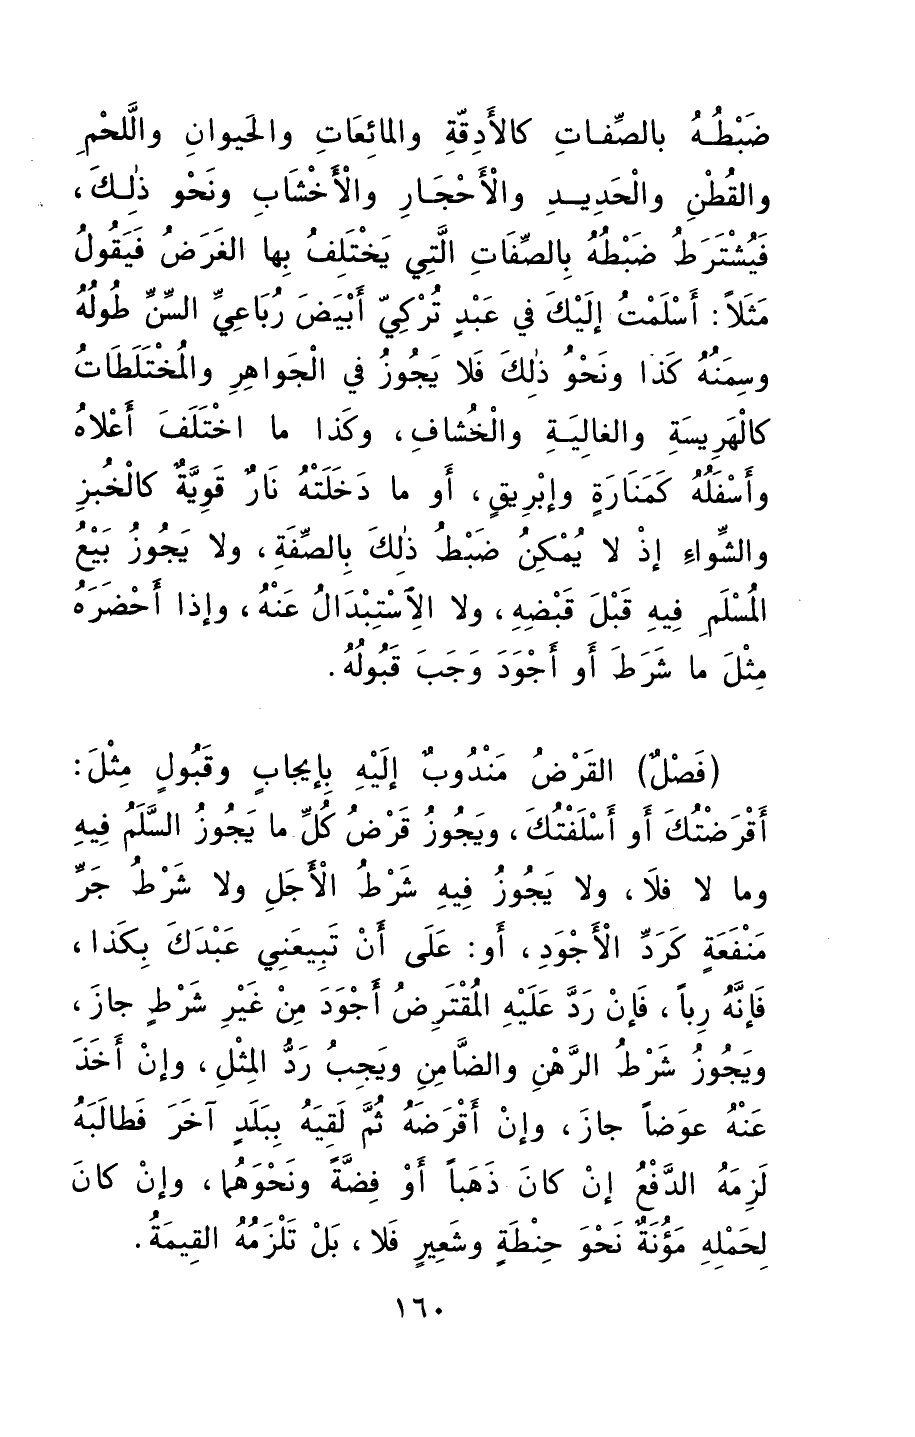 ضَبْطُهُ بالصِّفـاتِ كالأَدِقَّةِ والمائِعَاتِ والحَيوانِ واللَّحْمِ
والقُطْنِ والْحَدِيـدِ والْأَحْجَـارِ والْأَخْشَابِ ونَحْوِ ذٰلِـكَ،
فَيُشْتَرَطُ ضَبْطُهُ بِالصِّفَاتِ الَّتِي يَخْتَلِفُ بِها الغَرَضُ فَيَقُولُ
مَثَلاً: أَسْلَمْتُ إلَيْكَ في عَبْدٍ تُرْكِيّ أَبْيَضَ رُبَاعِيِّ السِّنِّ طُولُهُ
وسِمَنُهُ كَذا ونَحْوُ ذٰلِكَ فَلا يَجُوزُ في الْجَواهِرِ والمُخْتَلَطَاتُ
كالْهَرِيسَةِ والغالِيَـةِ والْخُشافِ، وكَذا ما اخْتَلَفَ أَعْلاهُ
وأَسْفَلُهُ كَمَنَارَةٍ وإبْرِيقٍ، أَو ما دَخَلَتْهُ نَارٌ قَوِيَّةٌ كالْخُبزِ
والشِّواءِ إذْ لا يُمْكِنُ ضَبْطُ ذٰلِكَ بِالصِّفَةِ، ولا يَجُوزُ بَيْعُ
المُسْلَمِ فِيهِ قَبْلَ قَبْضِهِ، ولا الِاسْتِبْدَالُ عَنْهُ، وإذا أَحْضَرَهُ
مِثْلَ ما شَرَطَ أَو أَجْوَدَ وَجَبَ قَبُولُهُ.
(فَصْلٌ) القَرْضُ مَنْدُوبٌ إلَيْهِ بِإيجابٍ وقَبُولٍ مِثْلَ:
أَقْرَضْتُكَ أَو أَسْلَفْتُكَ، ويَجُوزُ قَرْضُ كُلِّ ما يَجُوزُ السَّلَمُ فِيهِ
وما لا فلَا، ولا يَجُوزُ فِيهِ شَرْطُ الْأَجَلِ ولا شَرْطُ جَرِّ
مَنْفَعَةٍ كَرَدِّ الْأَجْوَدِ، أَو: عَلَى أَنْ تَبِيعَنِي عَبْدَكَ بِكَذا،
فَإنَّهُ رِباً، فَإنْ رَدَّ عَلَيْهِ المُقْتَرِضُ أَجْوَدَ مِنْ غَيْرِ شَرْطٍ جازَ،
ويَجُوزُ شَرْطُ الرَّهْنِ والضَّامِنِ ويَجِبُ رَدُّ المِثْلِ، وإنْ أَخَذَ
عَنْهُ عوَضاً جازَ، وإنْ أَقْرَضَهُ ثُمَّ لَقِيَهُ بِبَلَدٍ آخَرَ فَطالَبَهُ
لَزِمَهُ الدَّفْعُ إنْ كانَ ذَهَباً أَوْ فِضَّةً ونَحْوَهُما، وإنْ كانَ
لِحَمْلِهِ مَؤُنَةٌ نَحْوَ حِنْطَةٍ وشَعِيرٍ فَلا، بَلْ تَلْزَمُهُ القِيمَةُ.
١٦٠